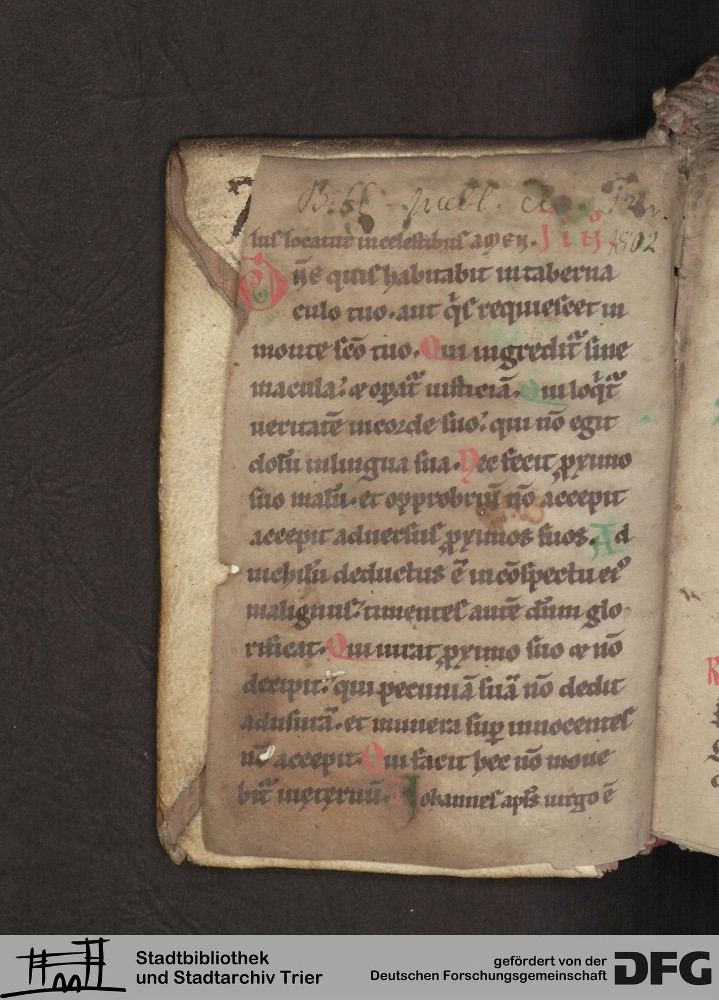 Bibl. publ. civ. Trev.
1802
lus locatur in celestibus amen.
Dn̄e quis habitabit in taberna
culo tuo. aut q̓s requiescet in
monte sc̄o tuo. Qui ingredit᷑ sine
macula: & op̄at᷑ iusticiā. Qui loq̓t᷑
ueritatē in corde suo: qui nō egit
dolū in lingua sua. Nec fecit ꝓximo
suo malū. et opprobriū nō accepit
accepit aduersus ꝓximos suos. Ad
nichilū deductus ē in cōspectu eiꝰ
malignus: timentes autē dn̄m glo
rificat. Qui iurat ꝓximo suo & nō
decipit: qui pecuniā suā nō dedit
ad usurā. et munera suꝑ innocentes
nō accepit. Qui facit hec nō moue
bit᷑ in eternū. Iohannes apl̄s uirgo ē
Stadtbibliothek
und Stadtarchiv Trier
gefördert von der
Deutschen Forschungsgemeinschaft
DFG